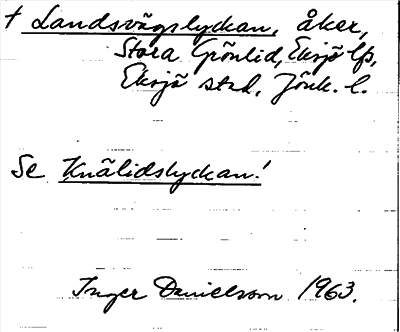 † Landsvägslyckan, åker,
Stora Grönlid, Eksjö lfs,
Eksjö stad, Jönk. l.
Se Knälidslyckan!
Inger Danielsson 1963.